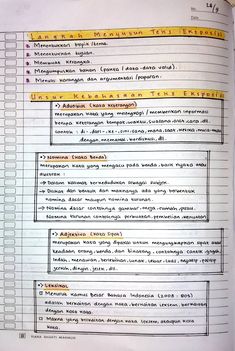 No.
Date.
Langkah Menyusun Teks Eksposisi
Menentukan topik/tema.
Menentukan tujuan.
Membuat kerangka.
Mengumpulkan bahan (fakta / data-data valid).
Menulis karangan dan argumentasi / paparan.
Unsur Kebahasaan Teks Eksposisi
•) Adverbia (kata keterangan)
merupakan kata yang melengkapi / memberikan informasi
berupa keterangan tempat, waktu, suasana, alat, cara, dll.
Contoh : di-, dari-, ke-, sini, sana, mana, saat, ketika, mula-mula
dengan, memakai, berdiskusi, dll.
•) Nomina (kata benda)
merupakan kata yang mengacu pada benda, baik nyata atau
abstrak :
→ Dalam kalimat berkedudukan sebagai subjek.
→ Diakui dari bentuk dan maknanya ada yang berbentuk
nomina dasar maupun nomina turunan.
→ Nomina dasar contohnya gambar, meja, rumah, pisau.
Nomina turunan contohnya perbuatan, pembelian, kekuatan
•) Adjektiva (kata sifat)
merupakan kata yang dipakai untuk mengungkapkan sifat atau
keadaan orang, benda, dan binatang, contohnya : cantik, gagah,
indah, menawan, berlebihan, lunak, lebar, luas, negatif, positif
jernih, dingin, jelek, dll.
•) Leksikal
Menurut Kamus Besar Bahasa Indonesia (2008 : 805)
adalah berkaitan dengan kata, berkaitan leksem, berkaitan
dengan kosa kata.
Makna yang berkaitan dengan kata, leksem, ataupun kosa
kata.